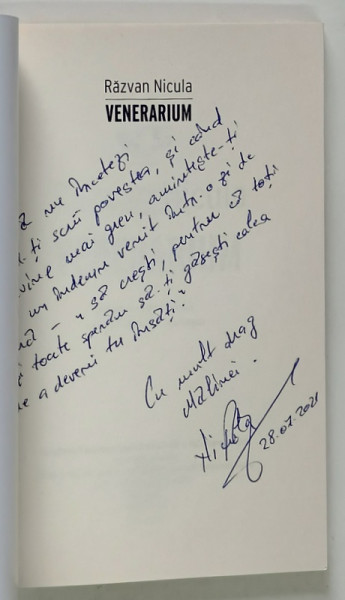 Răzvan Nicula
VENERARIUM
nu încetezi
-ți scrii povestea, și când
vine mai greu, amintește-ți
un îndemn venit într-o zi de
- „să crești, pentru că toți
și toate sperăm să-ți găsești calea
a deveni tu însăți.”
Cu mult drag
Mălinei.
28.07.2021